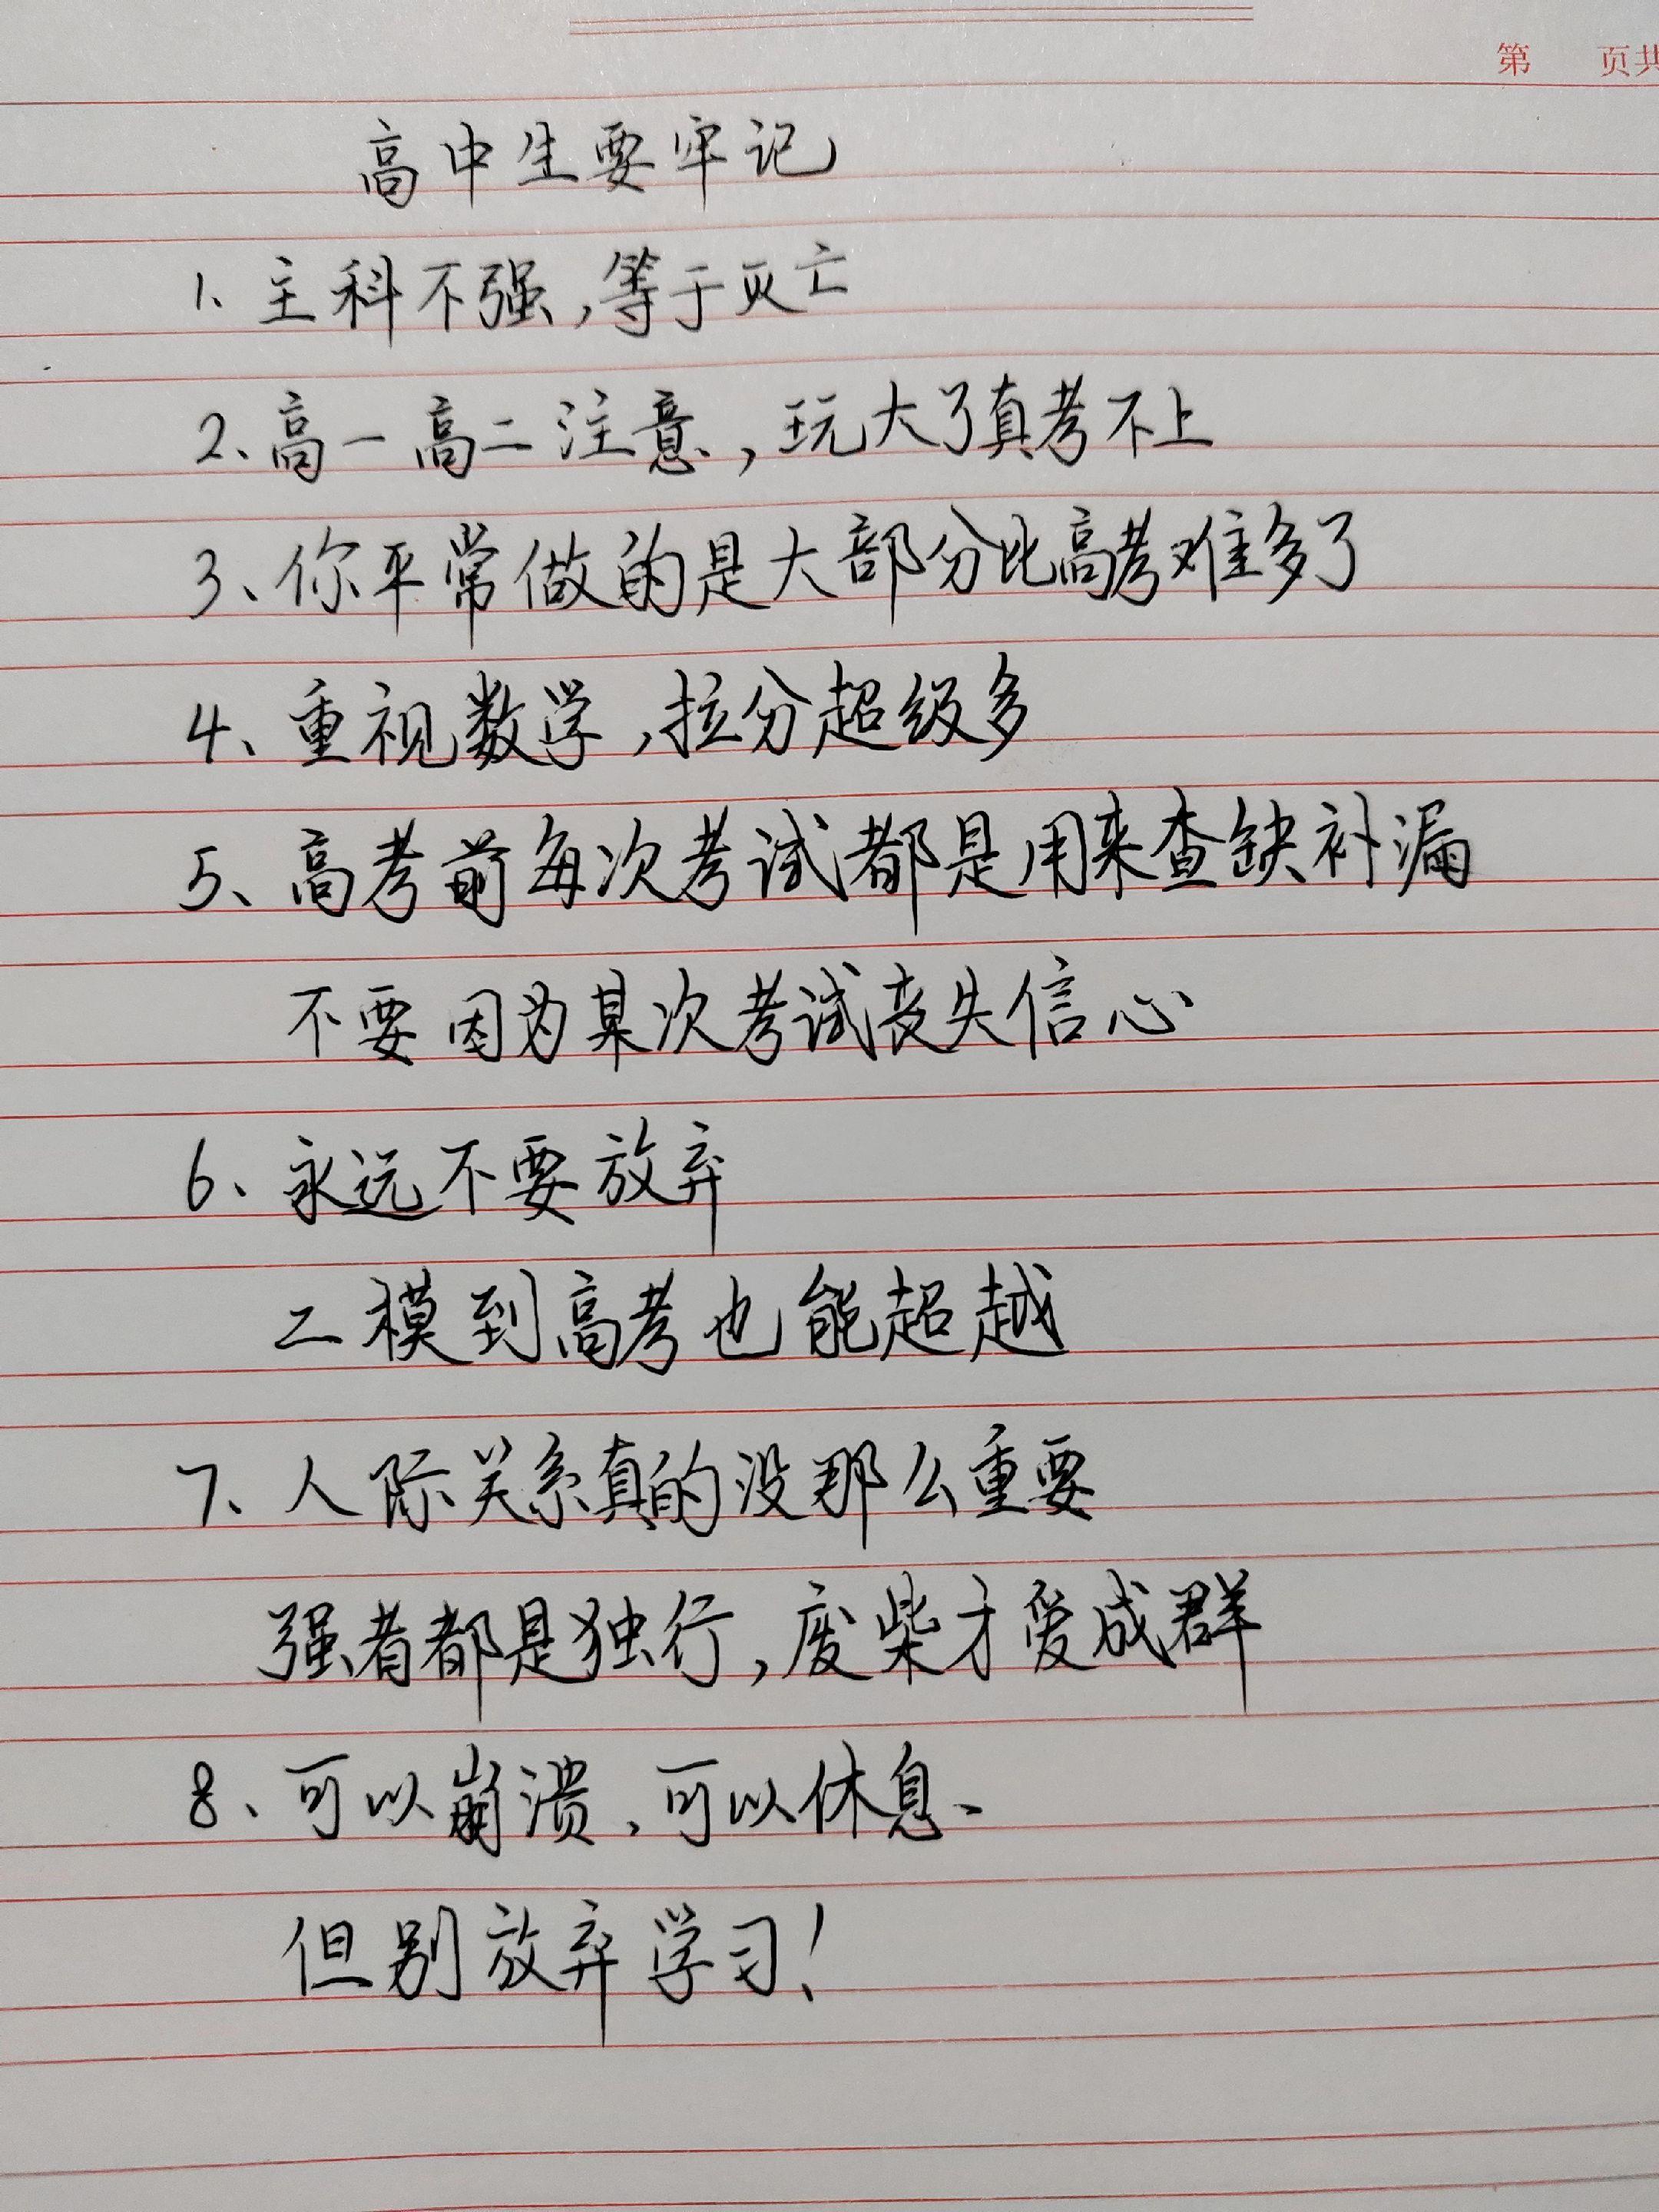 第 页共
高中生要牢记
1、主科不强,等于灭亡
2、高一高二注意,玩大了真考不上
3、你平常做的是大部分比高考难多了
4、重视数学,拉分超级多
5、高考前每次考试都是用来查缺补漏
不要因为某次考试丧失信心
6、永远不要放弃
二模到高考也能超越
7、人际关系真的没那么重要
强者都是独行,废柴才爱成群
8、可以崩溃,可以休息、
但别放弃学习!